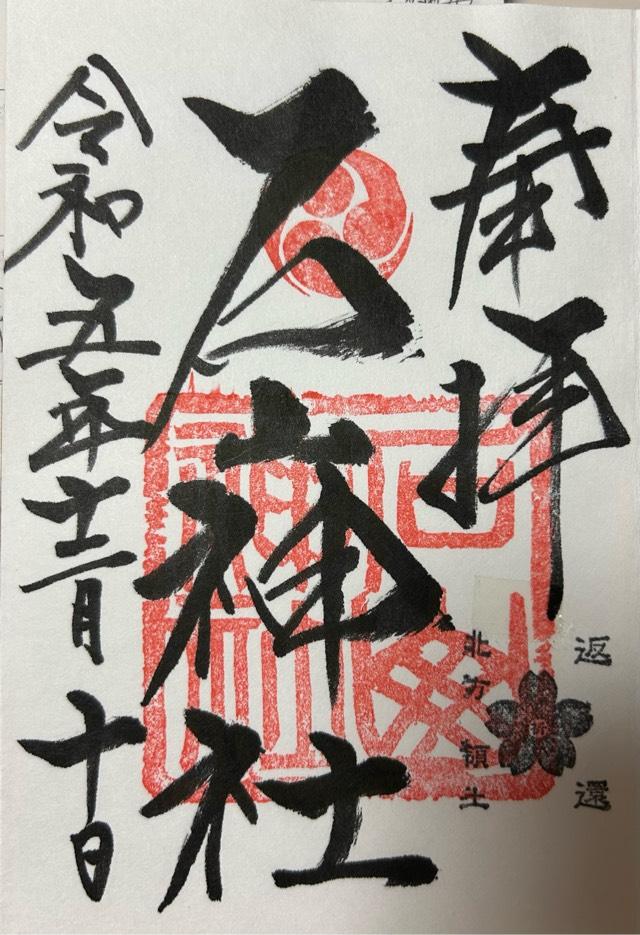 奉拝
山神社
令和五年十二月十日
返還
北方領土